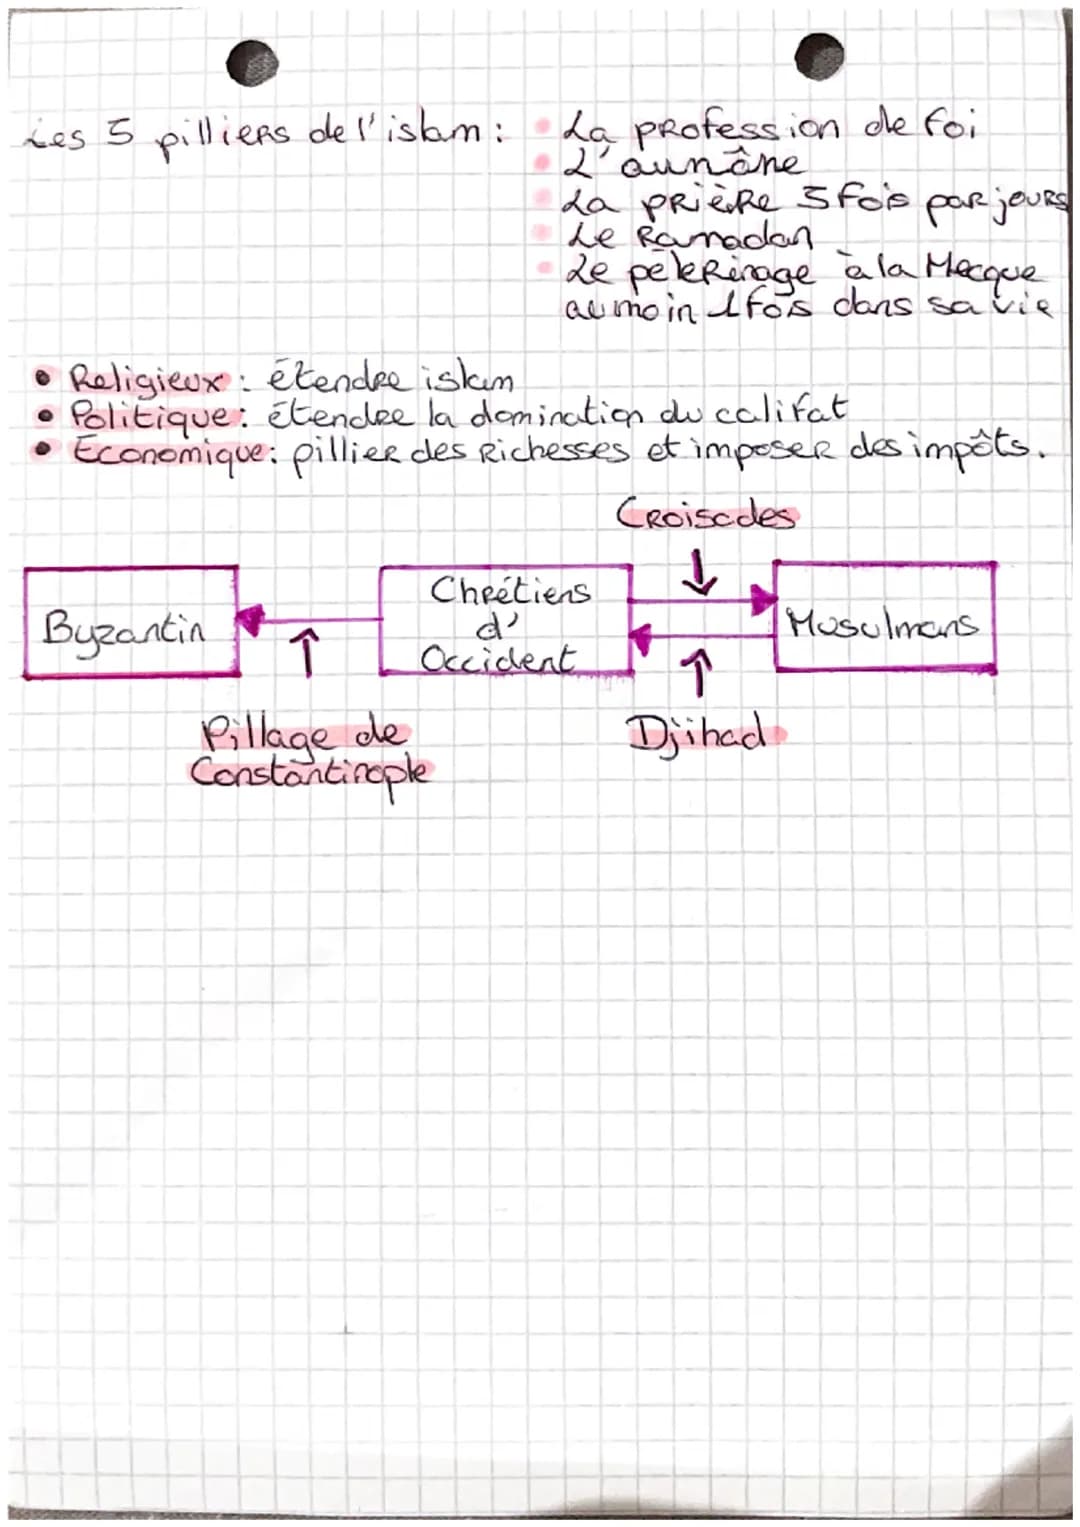 Les 5 pilliers de l'islam : • La profession de foi
• L'aunâne
• La prière 5 fois par jours
• Le Ramadan
• Le pélerinage à la Mecque
au moin 1 fois dans sa vie
• Religieux : étendre islam
• Politique : étendre la domination du califat
• Économique : pillier des richesses et imposer des impôts.
Croisades
Byzantin
Chrétiens
d'
Occident
Musulmans
Pillage de
Constantinople
Djihad